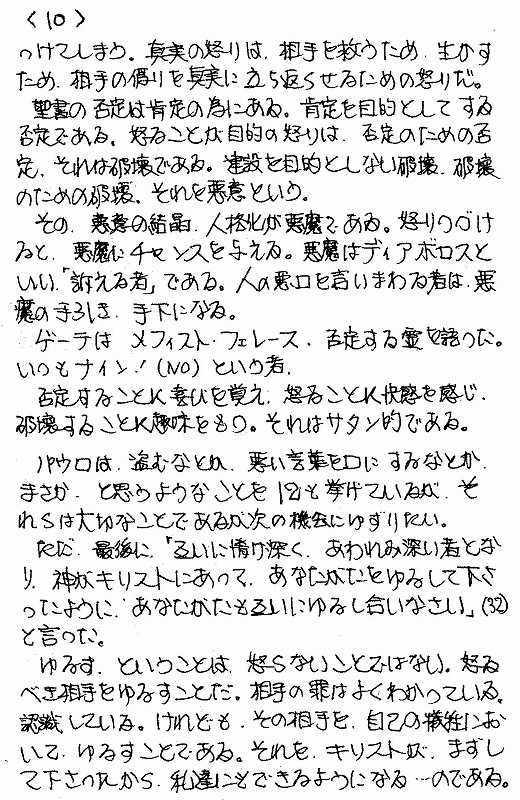 〈10〉
つけてしまう。真実の怒りは、相手を救うため、生かす
ため、相手の偽りを真実に立ち返らせるための怒りだ。
聖書の否定は肯定の為にある。肯定を目的としてする
否定である。怒ることが目的の怒りは、否定のための否
定、それは破壊である。建設を目的としない破壊、破壊
のための破壊、それを悪意という。
その、悪意の結晶、人格化が悪魔である。怒りつづけ
ると、悪魔にチャンスを与える。悪魔はディアボロスと
いい、「訴える者」である。人の悪口を言いまわる者は、悪
魔の手引き、手下になる。
ゲーテは メフィスト・フェレース、否定する霊を語った。
いつもナイン！(NO)という者、
否定することに喜びを覚え、怒ることに快感を感じ、
破壊することに趣味をもつ。それはサタン的である。
パウロは、盗むなとか、悪い言葉を口にするなとか、
まさか、と思うようなことを12も挙げているが、そ
れらは大切なことであるが次の機会にゆずりたい。
ただ、最後に、「互いに情け深く、あわれみ深い者とな
り、神がキリストにあって、あなたがたをゆるして下さ
ったように、あなたがたも互いにゆるし合いなさい」(32)
と言った。
ゆるす、ということは、怒らないことではない。怒る
べき相手をゆるすことだ。相手の罪はよくわかっている。
認識している。けれども、その相手を、自己の犠牲にお
いて、ゆるすことである。それを、キリストが、まずし
て下さったから、私達にもできるようになる…のである。